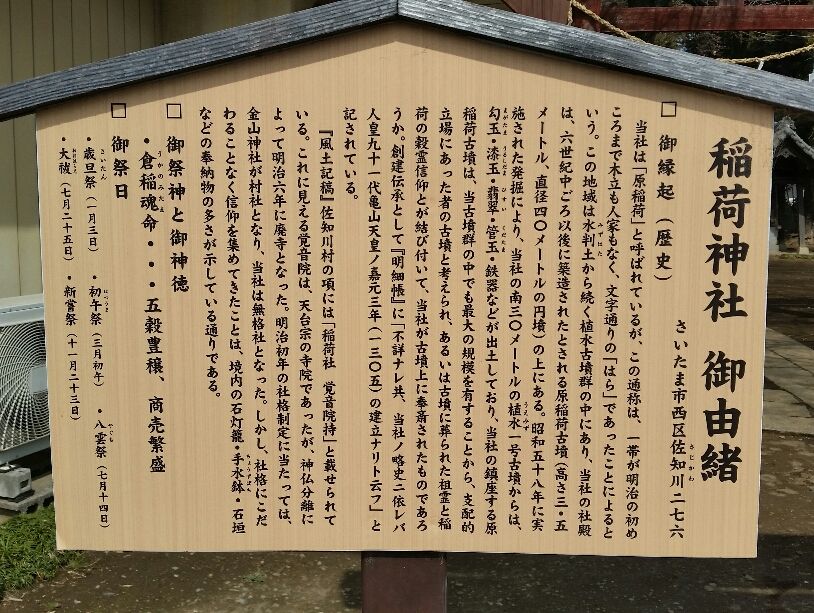 稲荷神社 御由緒
さいたま市西区佐知川二七六
さじかわ
□ 御縁起（歴史）
当社は「原稲荷」と呼ばれているが、この通称は、一帯が明治の初め
ころまで木立も人家もなく、文字通りの「はら」であったことによると
いう。この地域は水判土から続く植水古墳群の中にあり、当社の社殿
みずはた
は、六世紀中ごろ以後に築造されたとされる原稲荷古墳（高さ三・五
メートル、直径四〇メートルの円墳）の上にある。昭和五十八年に実
施された発掘により、当社の南三〇メートルの植水一号古墳からは、
うえみず
勾玉・漆玉・翡翠・管玉・鉄器などが出土しており、当社の鎮座する原
まがたま うるしだま ひすい くだたま
稲荷古墳は、当古墳群の中でも最大の規模を有することから、支配的
立場にあった者の古墳と考えられ、あるいは古墳に葬られた祖霊と稲
荷の穀霊信仰とが結び付いて、当社が古墳上に奉斎されたものであろ
うか。創建伝承として『明細帳』に「不詳ナレ共、当社ノ略史ニ依レバ
人皇九十一代亀山天皇ノ嘉元三年（一三〇五）の建立ナリト云フ」と
記されている。
『風土記稿』佐知川村の項には「稲荷社 覚音院持」と載せられて
いる。これに見える覚音院は、天台宗の寺院であったが、神仏分離に
よって明治六年に廃寺となった。明治初年の社格制定に当たっては、
金山神社が村社となり、当社は無格社となった。しかし、社格にこだ
わることなく信仰を集めてきたことは、境内の石灯籠・手水鉢・石垣
ちょうずばち
などの奉納物の多さが示している通りである。
□ 御祭神と御神徳
・倉稲魂命・・・五穀豊穣、商売繁盛
うかのみたま
□ 御祭日
・歳旦祭（一月三日） ・初午祭（三月初午） ・八雲祭（七月十四日）
さいたん はつうま やくも
・大祓（七月二五日） ・新嘗祭（十一月二十三日）